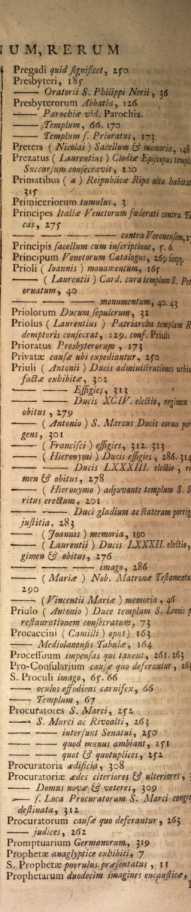 NUM, RERUM
Pregadi quid significet, 250
Presbyteri, 185
—— Oratorii S. Philippi Nerii, 36
Presbyterorum Abbatia, 126
—— Parochiæ vid. Parochia.
—— Templum, 66. 170
—— Templum s. Prioratus, 173
Pretera (Nicolai) Sacellum & memoria, 148
Prezatus (Laurentius) Clodiæ Episcopus
Succursum consecravit, 220
Primatibus (a) Reipublicæ Ripa alta
315
Primiceriorum tumulus, 3
Principes Italiæ Venetorum fœderati contra
cas, 275
—— contra Veronensem,
Principis sacellum cum inscriptione, 5. 6
Principum Venetorum Catalogus, 269
Prioli (Ioannis) monumentum, 165
—— (Laurentii) Card. cura templum S.
oruatum, 40
—— monumentum, 40. 43
Priolorum Ducum sepulcrum, 32
Priolus (Laurentius) Patriarcha templum
demptoris consecrat, 129. conf. Priuli
Prioratus Presbyterorum, 173
Privatæ causæ ubi expediantur, 250
Priuli (Antonii) Ducis administrationis
factæ exhibitæ, 302
—— Effigies, 313
—— Ducis XCIV. electio, regimen
obitus, 279
—— (Antonio) S. Marcus Ducis
gens, 301
—— (Francisci) effigies, 312. 313
—— (Hieronymi) Ducis effigies, 286. 314
—— Ducis LXXXIII. electio,
men & obitus, 278
—— (Hieronymo) adjuvante templum S.
ritus erectum, 201
—— Duci gladium ac stateram
justitia, 283
—— (Joannis) memoria, 190
—— (Laurentii) Ducis LXXXII. electio,
gimen & obitus, 276
—— imago, 286
—— (Mariæ) Nob. Matronæ
290
—— (Vincentii Mariæ) memoria, 46
Priulo (Antonio) Duce templum S.
restaurationem consecratum, 73
Procaccini (Camilli) opus, 163
—— Mediolanensis Tabulæ, 164
Processuum expensas qui taxent, 261. 263
Pro-Consularium causæ quo deferantur,
S. Proculi imago, 65. 66
—— oculos effodiens carnifex, 66
—— Templum, 67
Procuratores S. Marci, 252
—— S. Marci ac Rivoalti, 263
—— intersunt Senatui, 250
—— quod munus ambiant, 251
—— quot & quotuplices, 252
Procuratoria ædificia, 308
Procuratoriæ ædes citeriores & ulteriores,
—— Domus novæ & veteres, 309
—— s. Luca Procuratorum S. Marci
destinata, 312
Procuratorum causæ quo deferantur, 263
—— judices, 262
Promptuarium Germanorum, 319
Prophetæ anaglyptice exhibiti, 7
S. Prophetæ puerulus præsentatus, 11
Prophetarum duodecim imagines